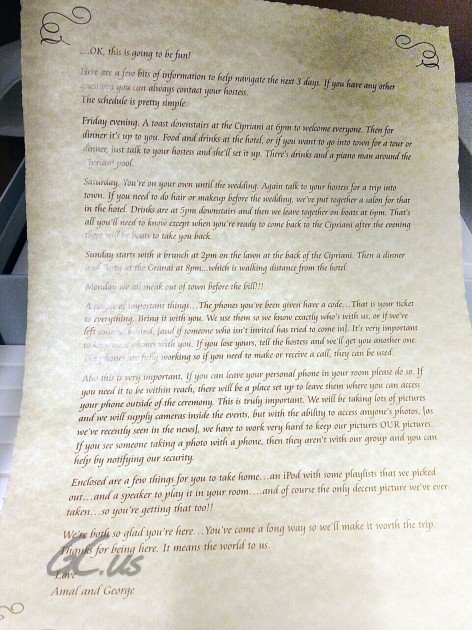 ....OK, this is going to be fun!
Here are a few bits of information to help navigate the next 3 days. If you have any other
questions you can always contact your hostess.
The schedule is pretty simple.
Friday evening. A toast downstairs at the Cipriani at 6pm to welcome everyone. Then for
dinner it's up to you. Food and drinks at the hotel, or if you want to go into town for a tour or
dinner, just talk to your hostess and she'll set it up. There's drinks and a piano man around the
Cipriani pool.
Saturday. You're on your own until the wedding. Again talk to your hostess for a trip into
town. If you need to do hair or makeup before the wedding, we've put together a salon for that
in the hotel. Drinks are at 5pm downstairs and then we leave together on boats at 6pm. That's
all you'll need to know except when you're ready to come back to the Cipriani after the evening
there will be boats to take you back.
Sunday starts with a brunch at 2pm on the lawn at the back of the Cipriani. Then a dinner
and party at the Granai at 8pm...which is walking distance from the hotel.
Monday we all sneak out of town before the bill!!!
A couple of important things...The phones you've been given have a code...That is your ticket
to everything. Bring it with you. We use them so we know exactly who's with us, or if we've
left one behind, [and if someone who isn't invited has tried to come in]. It's very important
to keep these phones with you. If you lose yours, tell the hostess and we'll get you another one.
The phones are fully working so if you need to make or receive a call, they can be used.
Also this is very important, If you can leave your personal phone in your room please do so. If
you need it to be within reach, there will be a place set up to leave them where you can access
your phone outside of the ceremony. This is truly important. We will be taking lots of pictures
and we will supply cameras inside the events, but with the ability to access anyone's photos, [as
we've recently seen in the news], we have to work very hard to keep our pictures OUR pictures.
If you see someone taking a photo with a phone, then they aren't with our group and you can
help by notifying our security.
Enclosed are a few things for you to take home...an iPod with some playlists that we picked
out...and a speaker to play it in your room....and of course the only decent picture we've ever
taken...so you're getting that too!!
We're both so glad you're here...You've come a long way so we'll make it worth the trip.
Thanks for being here. It means the world to us.
Love
Amal and George
GC.us